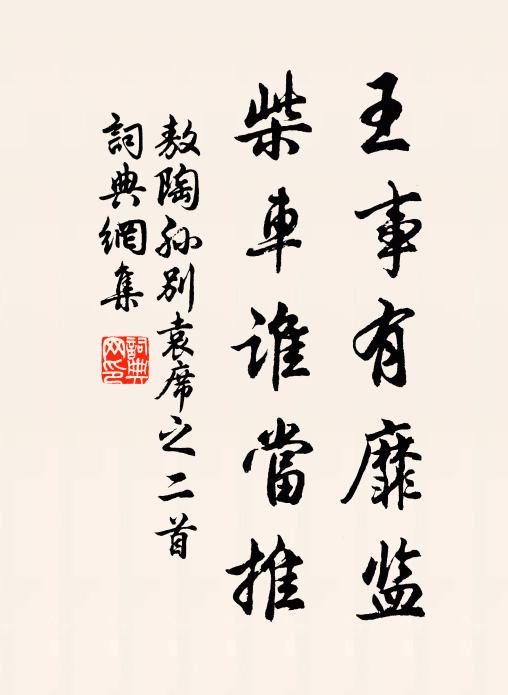 王事有靡监
柴車誰當推
敖陶孙别袁席之二首
詞典網集
詞典網印